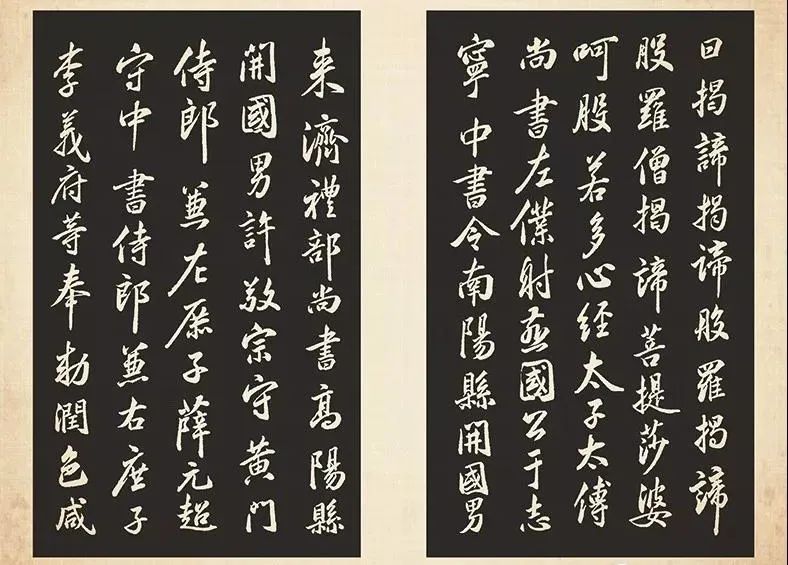 曰揭諦揭諦般羅揭諦
般羅僧揭諦菩提莎婆
呵般若多心經太子太傅
尚書左僕射燕國公于志
寧中書令南陽縣開國男
来濟禮部尚書高陽縣
開國男許敬宗守黃門
侍郎兼左庶子薛元超
守中書侍郎兼右庶子
李義府等奉勅潤色咸